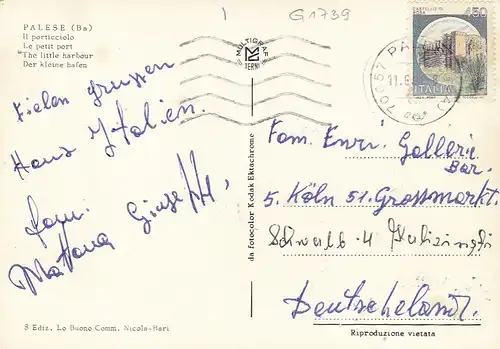 G1739
PALESE (Ba)
Il porticciolo
Le petit port
The little harbour
Der kleine hafen
MULTIGRAF
TERNI
450
ITALIA
70057 PA
11.
Vielen Grussen
Haus Italien.
fam.
Mattana Giuseppe,
da fotocolor Kodak Ektachrome
Fam. Enri. Gallerie
Bar.
5. Köln 51. Grossmarkt.
Schwalb. 4
Deutscheland.
S Ediz. Lo Buono Comm. Nicola-Bari
Riproduzione vietata